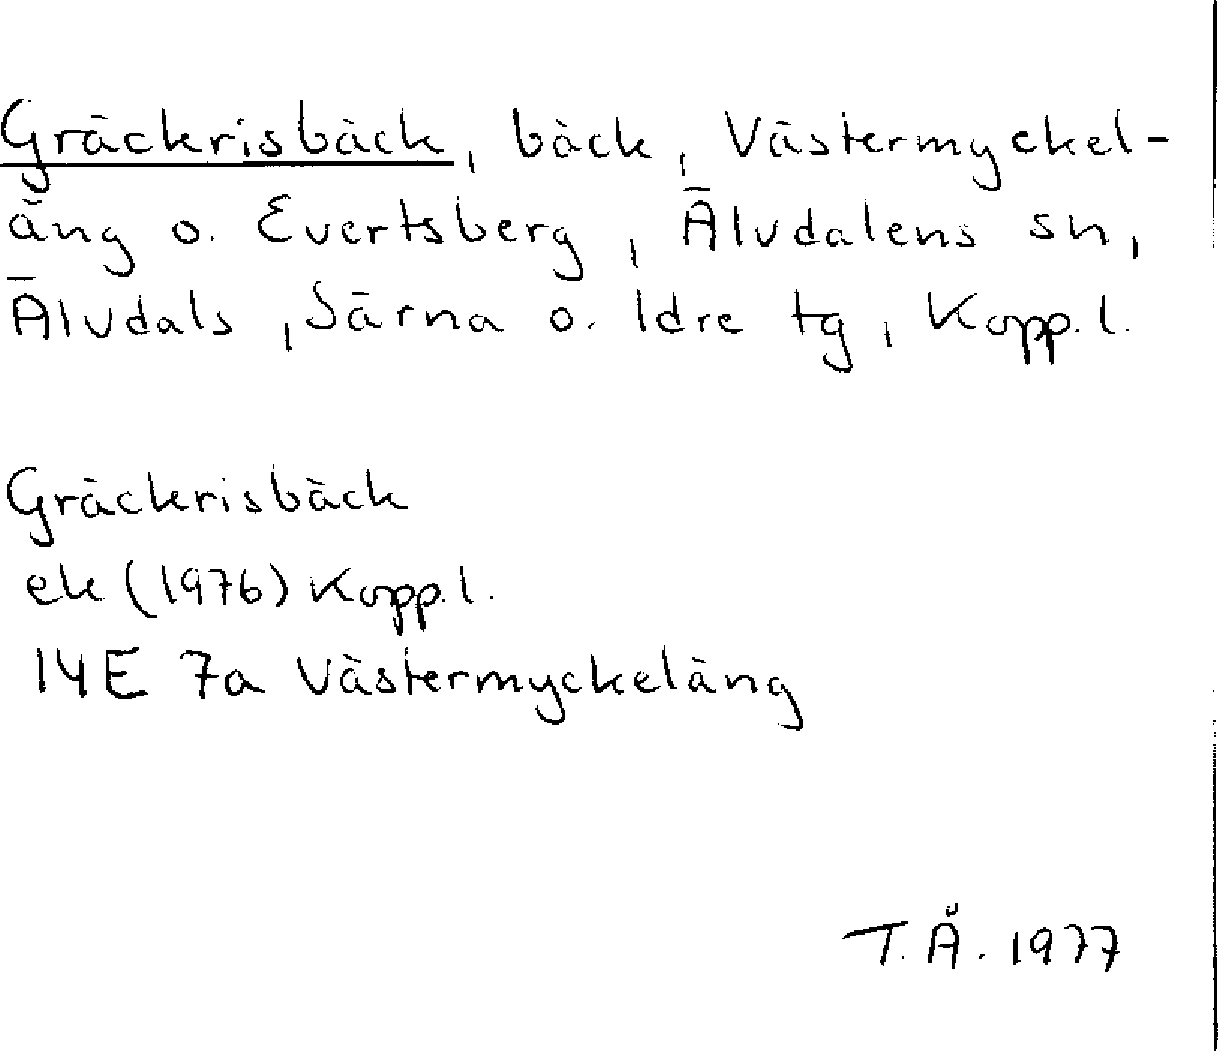 Gräckrisbäck, bäck, Västermyckel-
äng o. Evertsberg, Älvdalens sn,
Älvdals, Särna o. Idre tg, Kopp. l.
Gräckrisbäck
ek (1976) Kopp. l.
14E 7a Västermyckeläng
T. Å. 1977